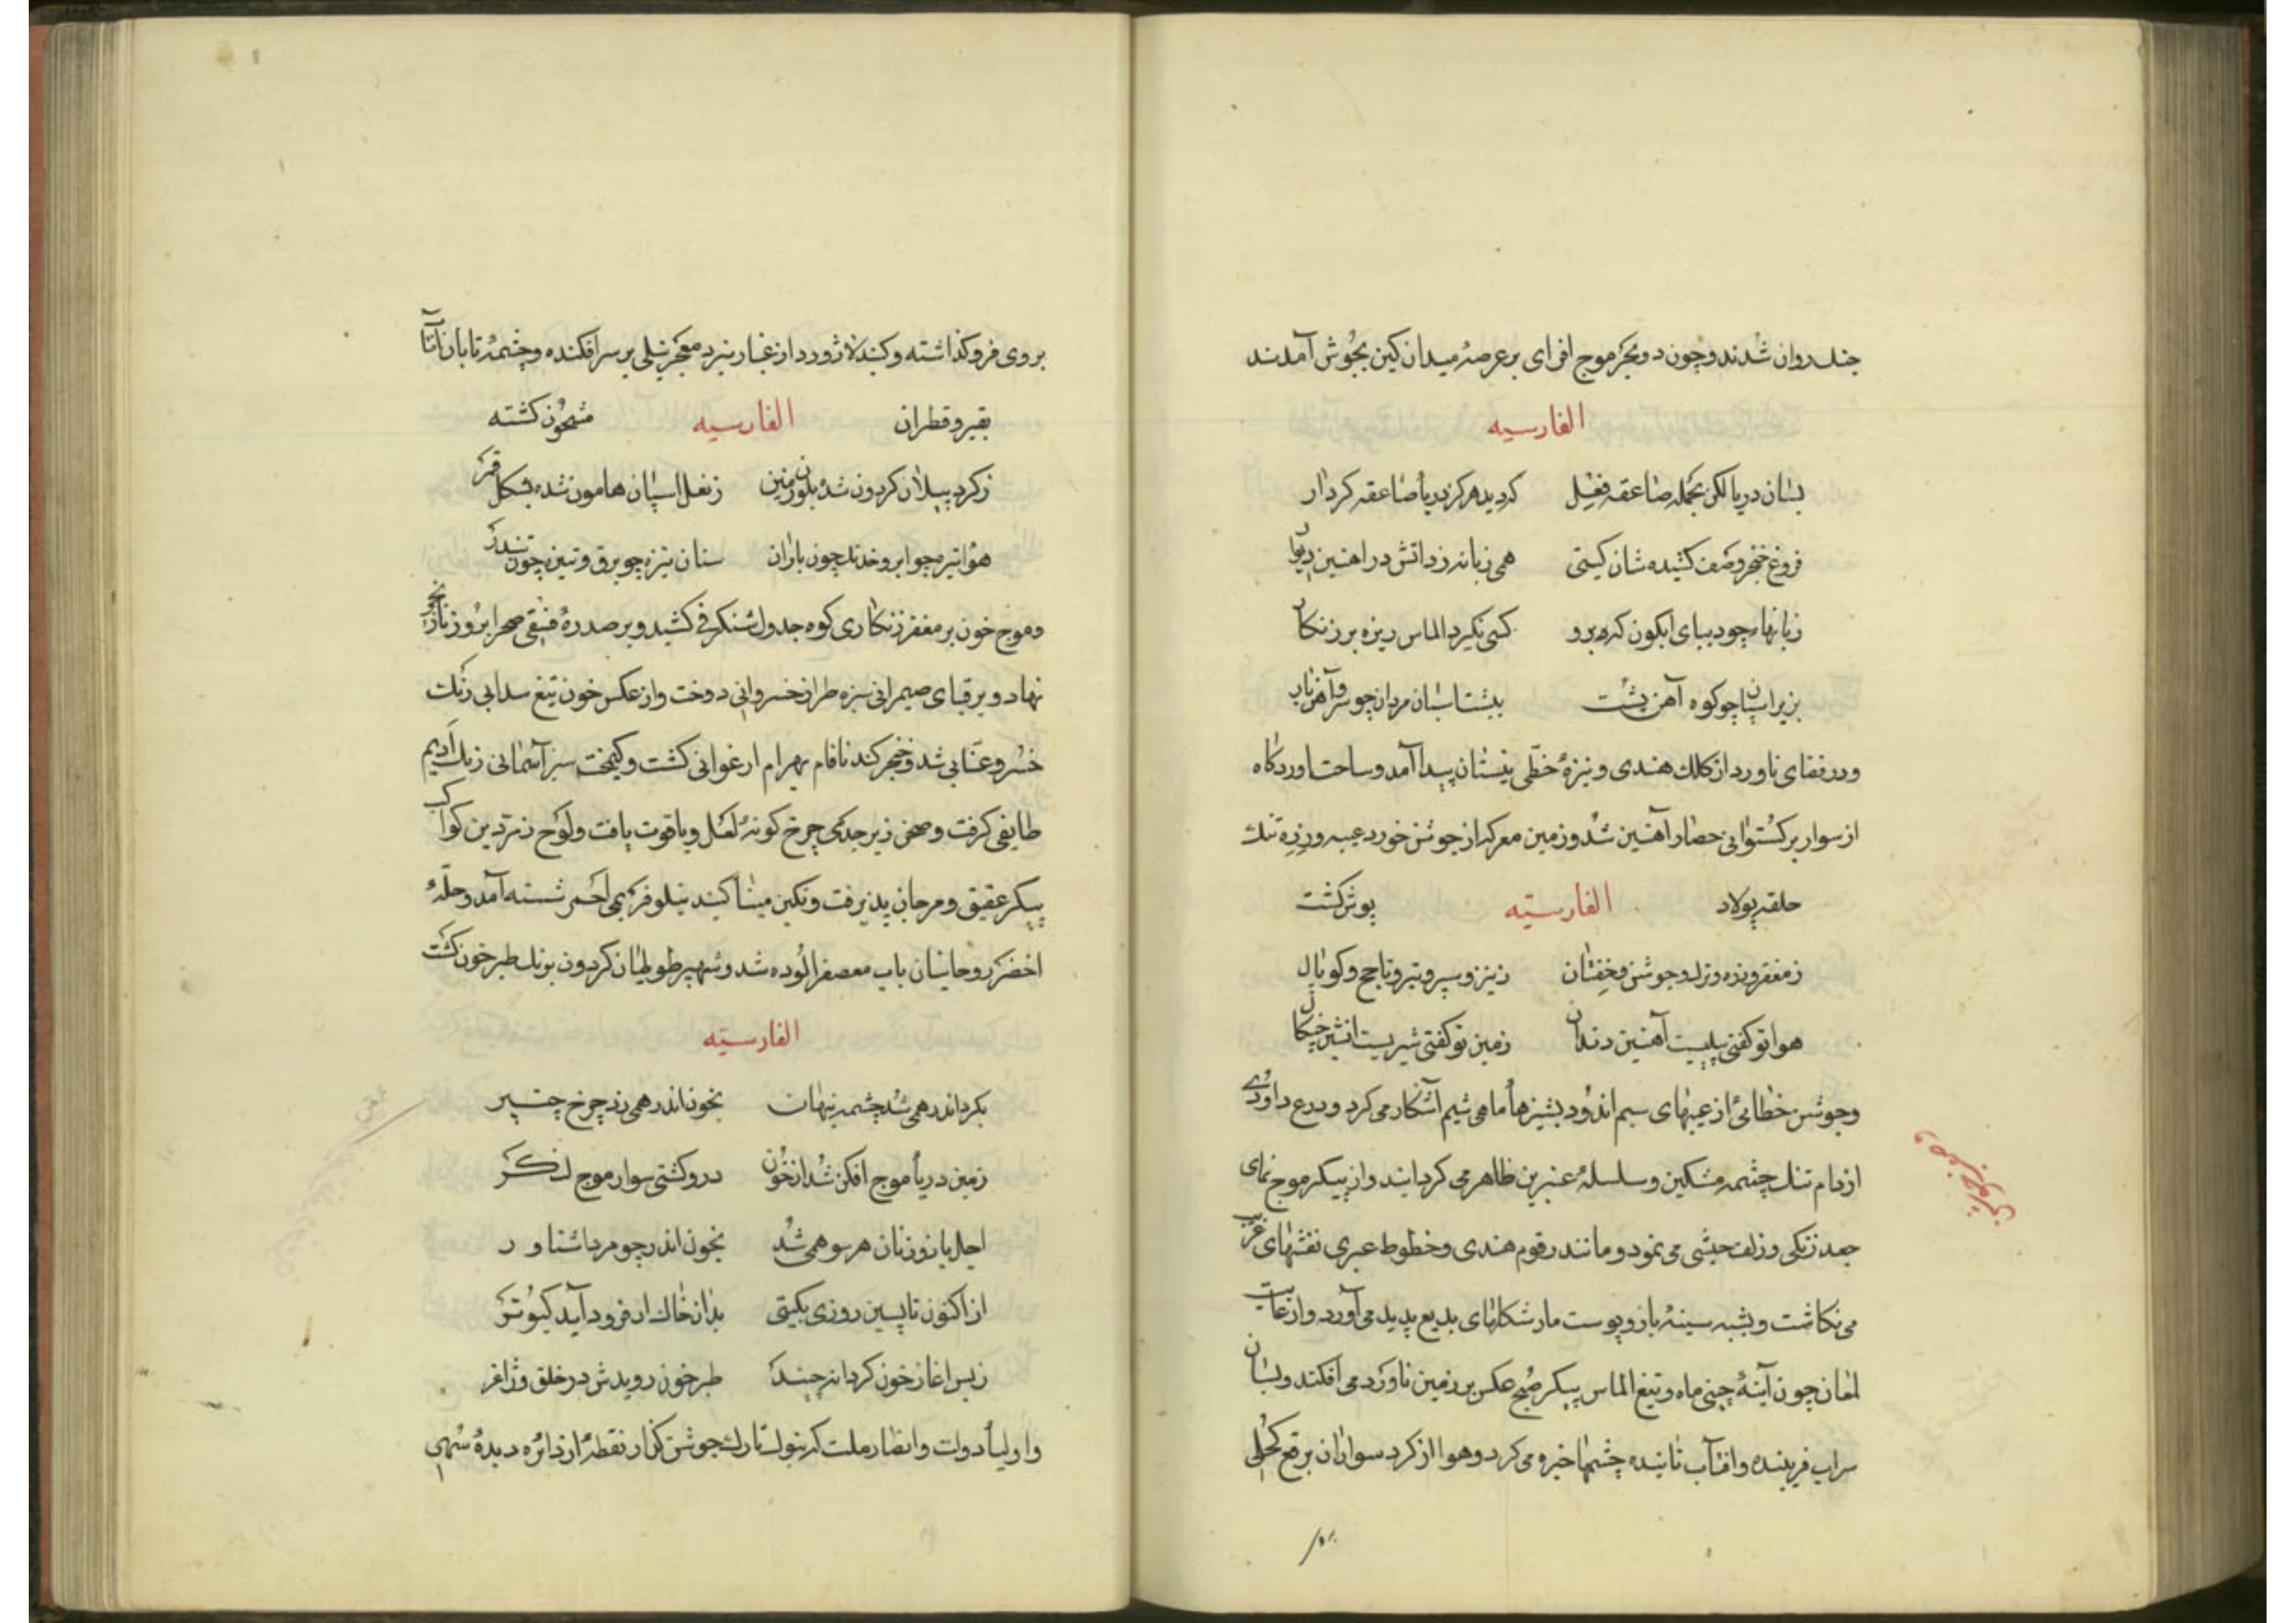 جنك روان شدند و چون دو بحر موج افزای بر عرصهٔ میدان کین بجوش آمدند
الفارسیه
بسان دریا لکن بحمله صاعقه فعل کردید هرکز دریا صاعقه کردار
فروغ خنجر و صف کشیده شان کیتی همی زبانه زد آتش در آهنین دیوار
زبانها چو دیبای آبکون که برو کسی بکرد الماس ریزه بر زنکار
بزیر اسپان چو کوه آهن پشت به پشت اسپان مردان چو سرو آهن بار
و در فضای ناورد از کلك هندی و نیزهٔ خطی نیستان پیدا آمد و ساحت آوردکاه
از سوار برکستوانی حصار آهنین شد و زمین معرکه از جوشن خورد عیبه و زره تنك
حلقه پولاد الفارسیّه پوش کشت
ز مغفر و زره و ترك و جوشن و خفتان ز نیزه و سپر و تیر و ناچخ و کوپال
هوا تو کفتی پیلیست آهنین دندان زمین تو کفتی شیریست آتشین چنکال
و جوشن خطائی از عیبهای سیم اندود پشیزها ماهی شیم آشکار می کرد و درع داودی
از دام تنك چشمه مشکین و سلسلهٔ عنبرین ظاهر می کردانید و از پیکر موج نمای
جعد زنکی و زلف حبشی می نمود و مانند رقوم هندی و خطوط عبری نقشهای غریب
می نکاشت و بشبه سینهٔ باز و پوست مار شکلهای بدیع پدید می آورد و از غایت
لمعان چون آینهٔ چینی ماه و تیغ الماس پیکر صبح عکس بر زمین ناورد می افکند و بسان
سراب فریبنده و آفتاب تابنده چشمها خیره می کرد و هوا از کرد سواران برقع کحلی
بروی فرو کذاشته و کنبد لاژورد از غبار نبرد معجر نیلی بر سر افکنده و چشمهٔ تابان آفتاب
بقیر و قطران الفارسیه مشحون کشته
ز کرد پیلان کردون شده بلون زمین ز نعل اسپان هامون شده بشکل قمر
هوا تیره چو ابر و خدنك چون باران سنان نیزه چو برق و تبیره چون تندر
و موج خون بر مغفر زنکاری کوه جدول شنکرفی کشید و بر صدرهٔ فستقی صحرا
نهاد و بر قبای ضیمرانی سبزه طراز خسروانی دوخت و از عکس خون تیغ سدابی رنك
خسرو عنّابی شد و خنجر کندنا فام بهرام ارغوانی کشت و کیمخت سبز آسمانی رنك ادیم
طایفی کرفت و صحن زبرجدی چرخ کونهٔ لعل و یاقوت یافت و لوح زمردین کواکب
پیکر عقیق و مرجان پذیرفت و نکین مینا کنبد نیلوفر بمی احمر شسته آمد و حلّهٔ
اخضر روحانیان باب معصفر آلوده شد و شهپر طوطیان کردون برنك طبرخون کشت
الفارسیّه
بکرد اندر همی شد چشمه پنهان بخون اندر همی زد چرخ چنبر
زمین دریا موج افکن شد از خون درو کشتی سوار موج لنکر
اجل بازو زنان هر سو همی شد بخون اندر چو مرد آشناور
از اکنون تا پسین روزی بکیتی بدان خاك ار فرود آید کبوتر
ز بس آغاز خون کرد آنچه چندك طبرخون رویدش در حلق و ژاغر
و اولیاء دولت و انصار ملت که بنوك ناوك جوشن کذار نقطهٔ از دائره دیدهٔ سهی